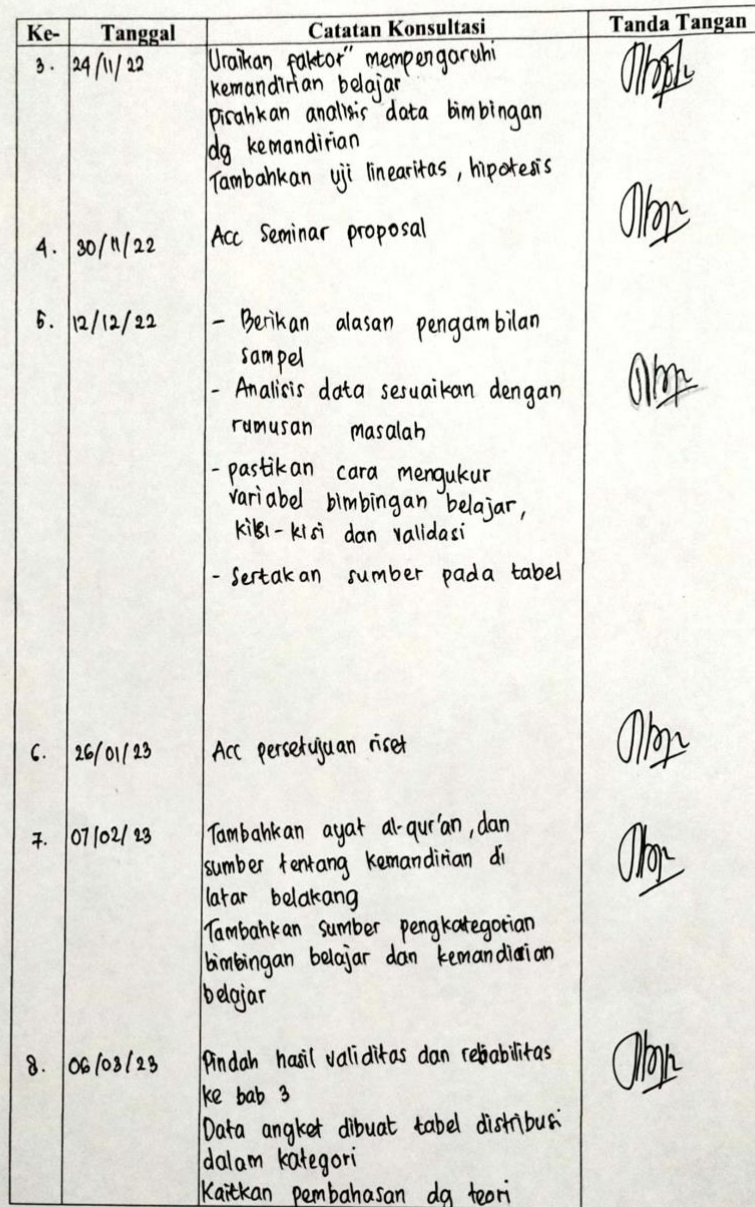 Ke- Tanggal Catatan Konsultasi Tanda Tangan
3. 24/11/22 Uraikan faktor" mempengaruhi
kemandirian belajar
Pisahkan analisis data bimbingan
dg kemandirian
Tambahkan uji linearitas, hipotesis
4. 30/11/22 Acc Seminar proposal
5. 12/12/22 - Berikan alasan pengambilan
sampel
- Analisis data sesuaikan dengan
rumusan masalah
- pastikan cara mengukur
variabel bimbingan belajar,
kisi-kisi dan validasi
- Sertakan sumber pada tabel
6. 26/01/23 Acc persetujuan riset
7. 07/02/23 Tambahkan ayat al-qur'an, dan
sumber tentang kemandirian di
latar belakang
Tambahkan sumber pengkategorian
bimbingan belajar dan kemandirian
belajar
8. 06/03/23 Pindah hasil validitas dan reliabilitas
ke bab 3
Data angket dibuat tabel distribusi
dalam kategori
Kaitkan pembahasan dg teori